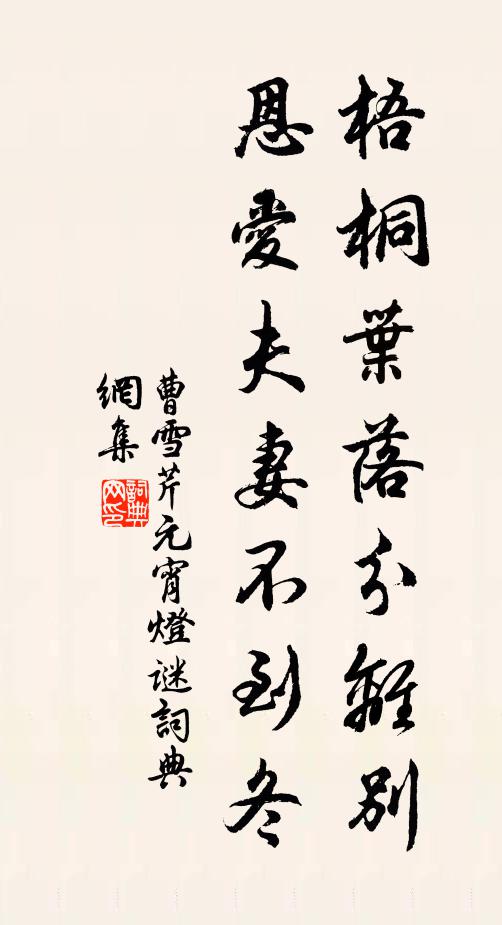 梧桐葉落分離別
恩愛夫妻不到冬
曹雪芹元宵燈谜詞典
網集
詞典網印